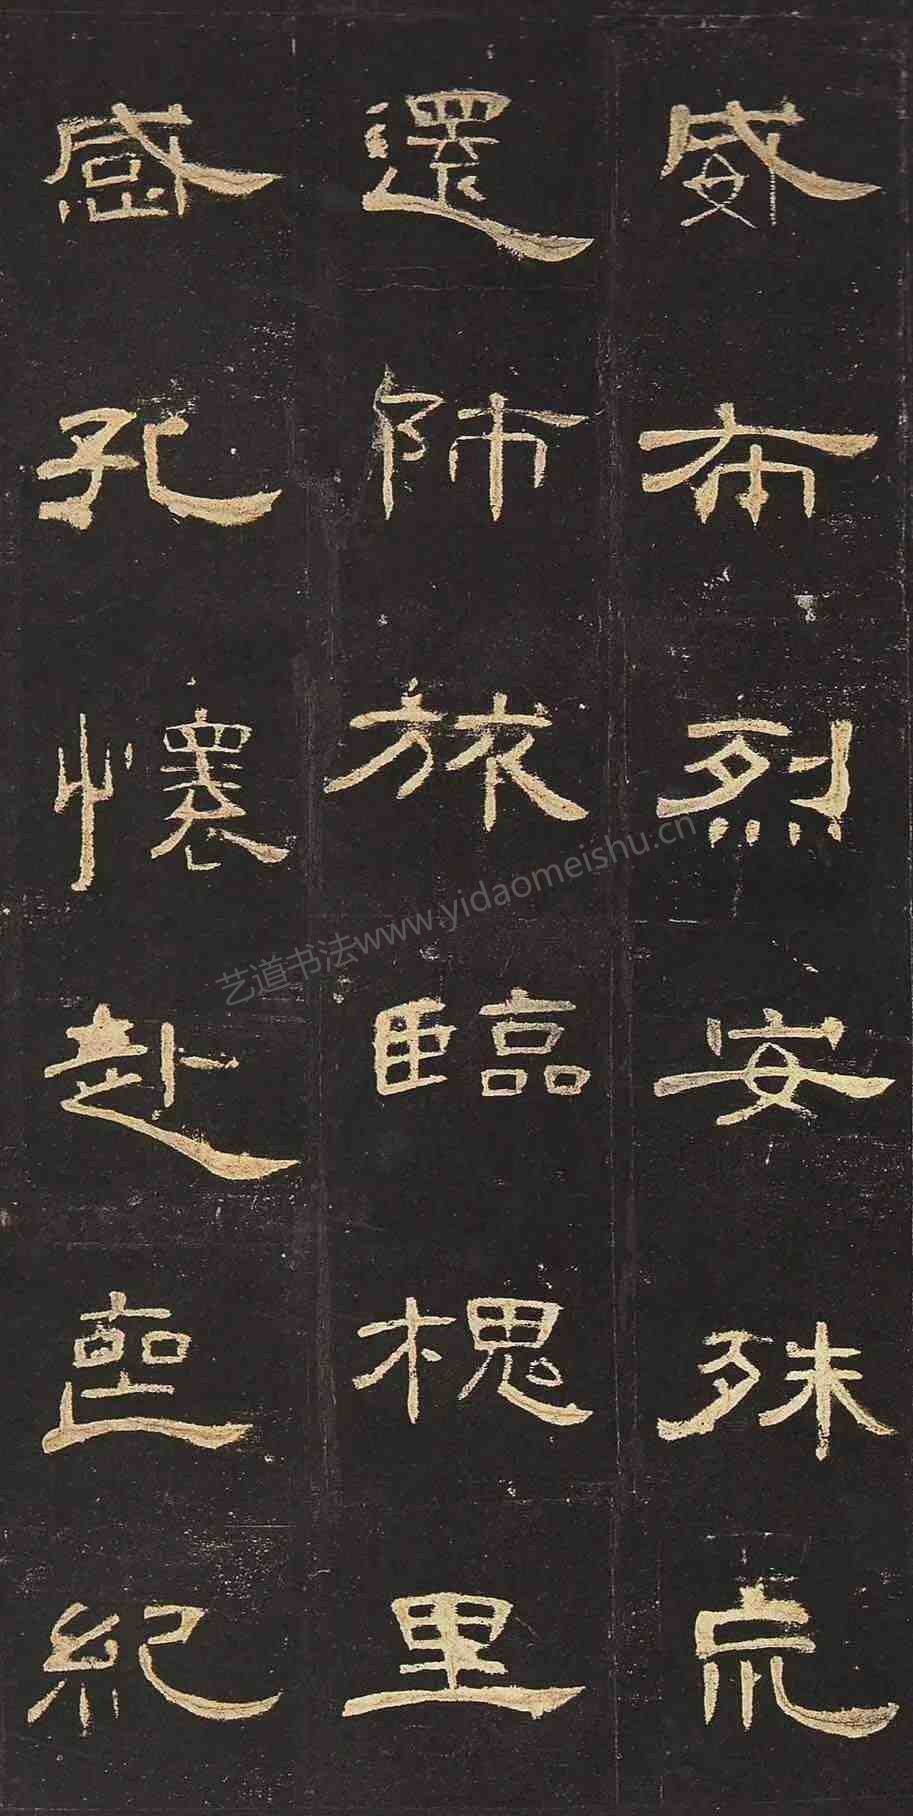 威布烈安殊荒
還師旅臨槐里
感孔懷赴喪紀
艺道书法www.yidaomeishu.cn